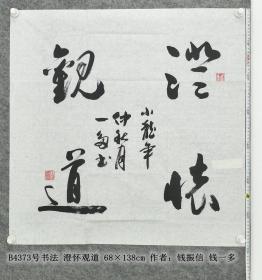 澄懷
觀道
小龍年
仲秋月
一多書
B4373号书法 澄怀观道 68×138cm 作者：钱振信 钱一多